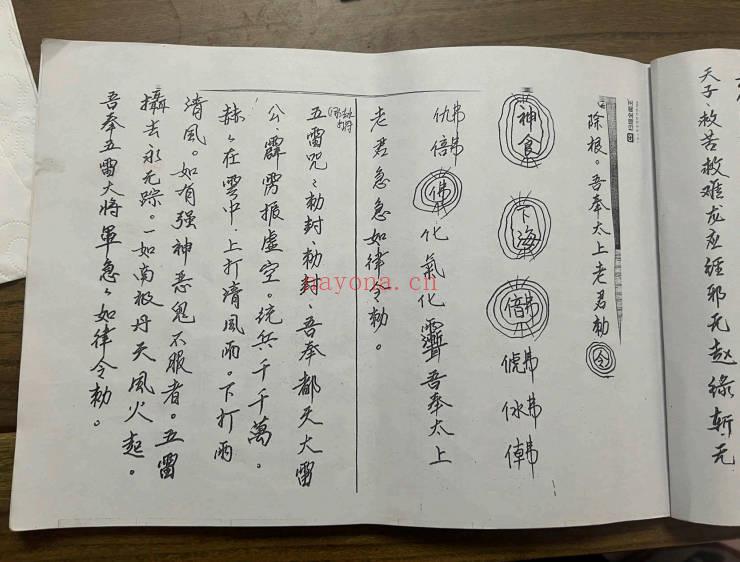 天子、救苦救难龙应经邪无赵缘斩、无
除根。吾奉太上老君勅令
神食 下海
化氣化靈吾奉太上
老君急急如律令勅。
五雷咒:勅封、勅封、吾奉都天大雷
公、霹雳振虚空。统兵千千萬。
赫赫在雲中、上打清风雨。下打雨
清风。如有强神恶鬼不服者。五雷
攝去永无踪。一如南极丹天風火起。
吾奉五雷大将軍急々如律令勅。
nayona.cn